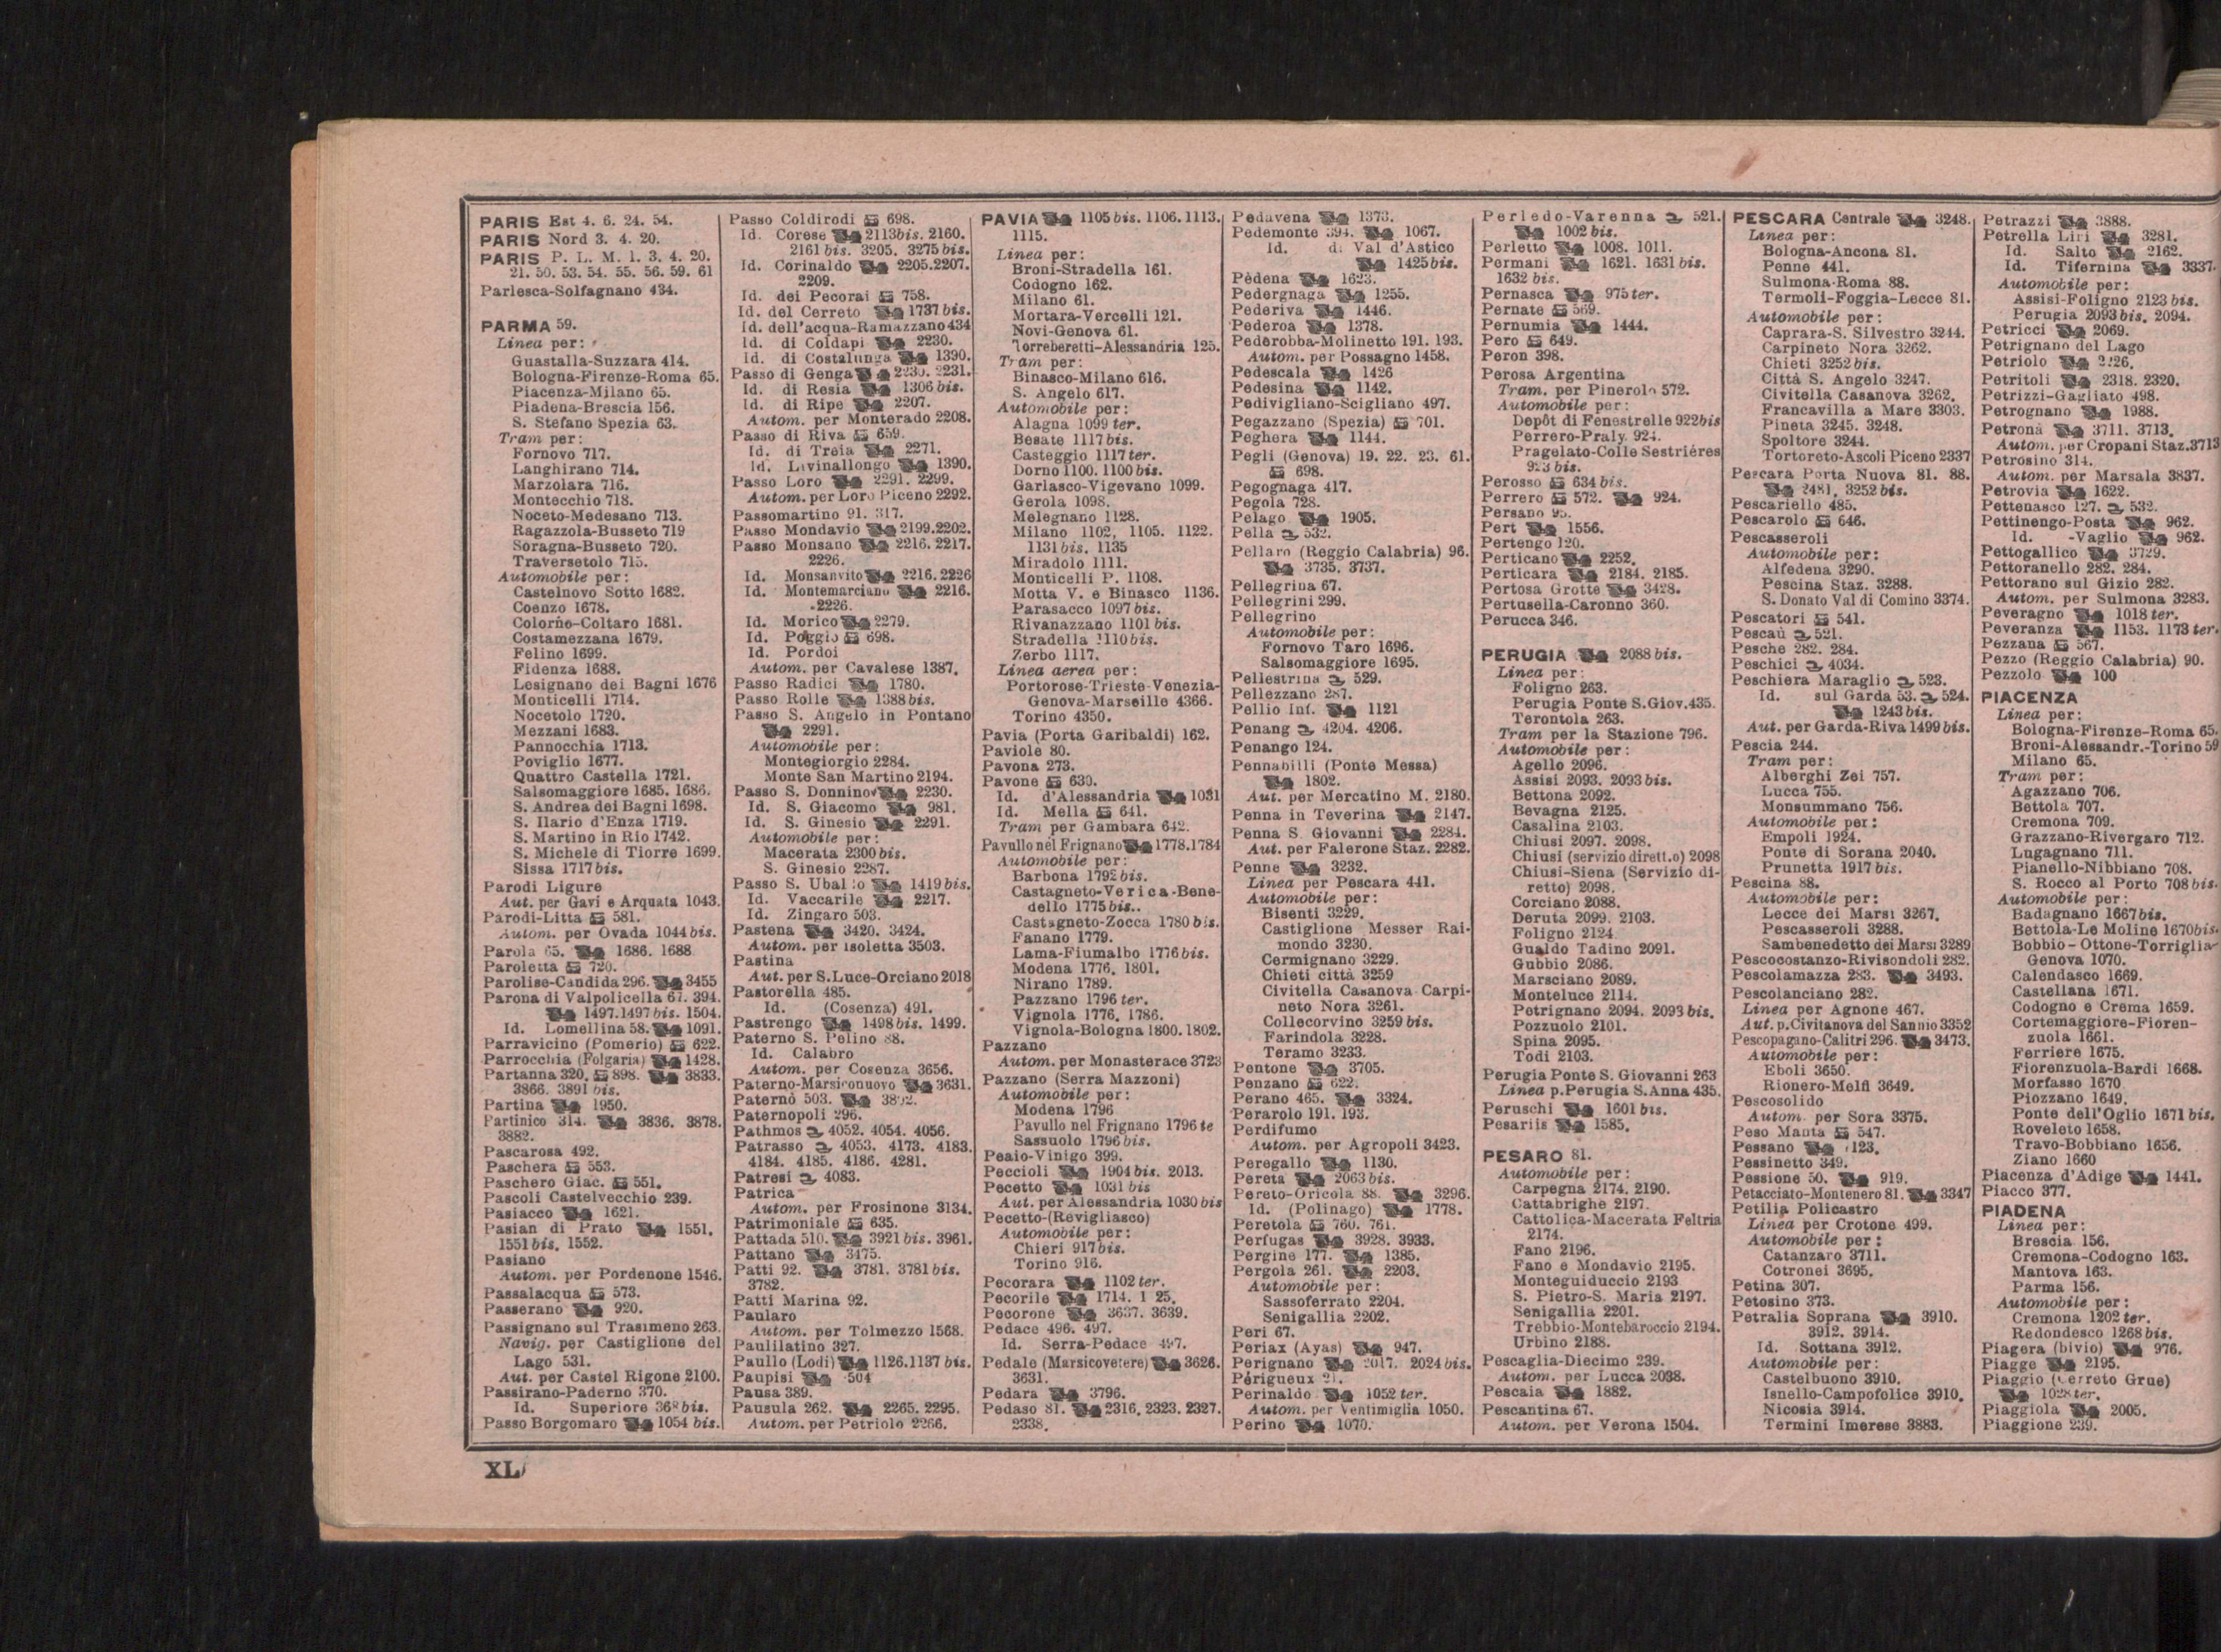 PARIS Est 4. 6. 24. 54.
PARIS Nord 3. 4. 20.
PARIS P. L. M. 1. 3. 4. 20.
21. 50. 53. 54. 55. 56. 59. 61
Parlesca-Solfagnano 434.
PARMA 59.
Linea per:
Guastalla-Suzzara 414.
Bologna-Firenze-Roma 65.
Piacenza-Milano 65.
Piadena-Brescia 156.
S. Stefano Spezia 63.
Tram per:
Fornovo 717.
Langhirano 714.
Marzolara 716.
Montecchio 718.
Noceto-Medesano 713.
Ragazzola-Busseto 719
Soragna-Busseto 720.
Traversetolo 715.
Automobile per:
Castelnovo Sotto 1682.
Coenzo 1678.
Colorno-Coltaro 1681.
Costamezzana 1679.
Felino 1699.
Fidenza 1688.
Lesignano dei Bagni 1676
Monticelli 1714.
Nocetolo 1720.
Mezzani 1683.
Pannocchia 1713.
Poviglio 1677.
Quattro Castella 1721.
Salsomaggiore 1685. 1686.
S. Andrea dei Bagni 1698.
S. Ilario d'Enza 1719.
S. Martino in Rio 1742.
S. Michele di Tiorre 1699.
Sissa 1717 bis.
Parodi Ligure
Aut. per Gavi e Arquata 1043.
Parodi-Litta 581.
Autom. per Ovada 1044 bis.
Parola 65. 1686. 1688
Paroletta 720.
Parolise-Candida 296. 3455
Parona di Valpolicella 67. 394.
1497. 1497 bis. 1504.
Id. Lomellina 58. 1091.
Parravicino (Pomerio) 622.
Parrocchia (Folgaria) 1428.
Partanna 320. 898. 3833.
3866. 3891 bis.
Partina 1950.
Partinico 314. 3836. 3878.
3882.
Pascarosa 492.
Paschera 553.
Paschero Giac. 551.
Pascoli Castelvecchio 239.
Pasiacco 1621.
Pasian di Prato 1551.
1551 bis. 1552.
Pasiano
Autom. per Pordenone 1546.
Passalacqua 573.
Passerano 920.
Passignano sul Trasimeno 263.
Navig. per Castiglione del
Lago 531.
Aut. per Castel Rigone 2100.
Passirano-Paderno 370.
Id. Superiore 368 bis.
Passo Borgomaro 1054 bis.
Passo Coldirodi 698.
Id. Corese 2113 bis. 2160.
2161 bis. 3205. 3275 bis.
Id. Corinaldo 2205. 2207.
2209.
Id. dei Pecorai 758.
Id. del Cerreto 1737 bis.
Id. dell'acqua-Ramazzano 434
Id. di Coldapi 2230.
Id. di Costalunga 1390.
Passo di Genga 2230. 2231.
Id. di Resia 1306 bis.
Id. di Ripe 2207.
Autom. per Monterado 2208.
Passo di Riva 659.
Id. di Treia 2271.
Id. Livinallongo 1390.
Passo Loro 2291. 2299.
Autom. per Loro Piceno 2292.
Passomartino 91. 317.
Passo Mondavio 2199. 2202.
Passo Monsano 2216. 2217.
2226.
Id. Monsanvito 2216. 2226
Id. Montemarciano 2216.
2226.
Id. Morico 2279.
Id. Poggio 698.
Id. Pordoi
Autom. per Cavalese 1387.
Passo Radici 1780.
Passo Rolle 1388 bis.
Passo S. Angelo in Pontano
2291.
Automobile per:
Montegiorgio 2284.
Monte San Martino 2194.
Passo S. Donnino 2230.
Id. S. Giacomo 981.
Id. S. Ginesio 2291.
Automobile per:
Macerata 2300 bis.
S. Ginesio 2287.
Passo S. Ubaldo 1419 bis.
Id. Vaccarile 2217.
Id. Zingaro 503.
Pastena 3420. 3424.
Autom. per Isoletta 3503.
Pastina
Aut. per S.Luce-Orciano 2018
Pastorella 485.
Id. (Cosenza) 491.
Pastrengo 1498 bis. 1499.
Paterno S. Pelino 88.
Id. Calabro
Autom. per Cosenza 3656.
Paterno-Marsiconuovo 3631.
Paternò 503.
Paternopoli 296.
Pathmos 4052. 4054. 4056.
Patrasso 4053. 4173. 4183.
4184. 4185. 4186. 4281.
Patresi 4083.
Patrica
Autom. per Frosinone 3134.
Patrimoniale 635.
Pattada 510. 3921 bis. 3961.
Pattano 3475.
Patti 92. 3781. 3781 bis.
3782.
Patti Marina 92.
Paularo
Autom. per Tolmezzo 1568.
Paulilatino 327.
Paullo (Lodi) 1126. 1137 bis.
Paupisi
Pausa 389.
Pausula 262. 2265. 2295.
Autom. per Petriolo 2266.
PAVIA 1105 bis. 1106. 1113.
1115.
Linea per:
Broni-Stradella 161.
Codogno 162.
Milano 61.
Mortara-Vercelli 121.
Novi-Genova 61.
Torreberetti-Alessandria 125.
Tram per:
Binasco-Milano 616.
S. Angelo 617.
Automobile per:
Alagna 1099 ter.
Besate 1117 bis.
Casteggio 1117 ter.
Dorno 1100. 1100 bis.
Garlasco-Vigevano 1099.
Gerola 1098.
Melegnano 1128.
Milano 1102. 1105. 1122.
1131 bis. 1135
Miradolo 1111.
Monticelli P. 1108.
Motta V. e Binasco 1136.
Parasacco 1097 bis.
Rivanazzano 1101 bis.
Stradella 1110 bis.
Zerbo 1117.
Linea aerea per:
Portorose-Trieste-Venezia-
Genova-Marseille 4366.
Torino 4350.
Pavia (Porta Garibaldi) 162.
Paviole 80.
Pavona 273.
Pavone 630.
Id. d'Alessandria 1031
Id. Mella 641.
Tram per Gambara 642.
Pavullo nel Frignano 1778. 1784
Automobile per:
Barbona 1792 bis.
Castagneto-Verica-Bene-
dello 1775 bis..
Castagneto-Zocca 1780 bis.
Fanano 1779.
Lama-Fiumalbo 1776 bis.
Modena 1776. 1801.
Nirano 1789.
Pazzano 1796 ter.
Vignola 1776. 1786.
Vignola-Bologna 1800. 1802.
Pazzano
Autom. per Monasterace 3723
Pazzano (Serra Mazzoni)
Automobile per:
Modena 1796
Pavullo nel Frignano 1796 te
Sassuolo 1796 bis.
Peaio-Vinigo 399.
Peccioli 1904 bis. 2013.
Pecetto 1031 bis
Aut. per Alessandria 1030 bis
Pecetto-(Revigliasco)
Automobile per:
Chieri 917 bis.
Torino 916.
Pecorara 1102 ter.
Pecorile 1714.
Pecorone 3637. 3639.
Pedace 496. 497.
Id. Serra-Pedace 497.
Pedale (Marsicovetere) 3626.
3631.
Pedara 3796.
Pedaso 81. 2316. 2323. 2327.
2338.
Pedavena 1373.
Pedemonte 394. 1067.
Id. di Val d'Astico
1425 bis.
Pèdena 1623.
Pedergnaga 1255.
Pederiva 1446.
Pederoa 1378.
Pederobba-Molinetto 191. 193.
Autom. per Possagno 1458.
Pedescala 1426
Pedesina 1142.
Pedivigliano-Scigliano 497.
Pegazzano (Spezia) 701.
Peghera 1144.
Pegli (Genova) 19. 22. 23. 61.
698.
Pegognaga 417.
Pegola 728.
Pelago 1905.
Pella 532.
Pellaro (Reggio Calabria) 96.
3735. 3737.
Pellegrina 67.
Pellegrini 299.
Pellegrino
Automobile per:
Fornovo Taro 1696.
Salsomaggiore 1695.
Pellestrina 529.
Pellezzano 287.
Pellio Inf. 1121
Penang 4204. 4206.
Penango 124.
Pennabilli (Ponte Messa)
1802.
Aut. per Mercatino M. 2180.
Penna in Teverina 2147.
Penna S. Giovanni 2284.
Aut. per Falerone Staz. 2282.
Penne 3232.
Linea per Pescara 441.
Automobile per:
Bisenti 3229.
Castiglione Messer Rai-
mondo 3230.
Cermignano 3229.
Chieti città 3259
Civitella Casanova Carpi-
neto Nora 3261.
Collecorvino 3259 bis.
Farindola 3228.
Teramo 3233.
Pentone 3705.
Penzano 622.
Perano 465. 3324.
Perarolo 191. 193.
Perdifumo
Autom. per Agropoli 3423.
Peregallo 1130.
Pereta 2063 bis.
Pereto-Oricola 88. 3296.
Id. (Polinago) 1778.
Peretola 760. 761.
Perfugas 3928. 3933.
Pergine 177. 1385.
Pergola 261. 2203.
Automobile per:
Sassoferrato 2204.
Senigallia 2202.
Peri 67.
Periax (Ayas) 947.
Perignano 2017. 2024 bis.
Périgueux 21.
Perinaldo 1052 ter.
Autom. per Ventimiglia 1050.
Perino 1070.
Perledo-Varenna 521.
1002 bis.
Perletto 1008. 1011.
Permani 1621. 1631 bis.
1632 bis.
Pernasca 975 ter.
Pernate 569.
Pernumia 1444.
Pero 649.
Peron 398.
Perosa Argentina
Tram. per Pinerolo 572.
Automobile per:
Depôt di Fenestrelle 922 bis
Perrero-Praly 924.
Pragelato-Colle Sestriéres
923 bis.
Perosso 634 bis.
Perrero 572. 924.
Persano 95.
Pert 1556.
Pertengo 120.
Perticano 2252.
Perticara 2184. 2185.
Pertosa Grotte 3428.
Pertusella-Caronno 360.
Perucca 346.
PERUGIA 2088 bis.
Linea per:
Foligno 263.
Perugia Ponte S.Giov. 435.
Terontola 263.
Tram per la Stazione 796.
Automobile per:
Agello 2096.
Assisi 2093. 2093 bis.
Bettona 2092.
Bevagna 2125.
Casalina 2103.
Chiusi 2097. 2098.
Chiusi (servizio dirett.o) 2098
Chiusi-Siena (Servizio di-
retto) 2098.
Corciano 2088.
Deruta 2099. 2103.
Foligno 2124
Gualdo Tadino 2091.
Gubbio 2086.
Marsciano 2089.
Monteluce 2114.
Petrignano 2094. 2093 bis.
Pozzuolo 2101.
Spina 2095.
Todi 2103.
Perugia Ponte S. Giovanni 263
Linea p.Perugia S.Anna 435.
Peruschi 1601 bis.
Pesariis 1585.
PESARO 81.
Automobile per:
Carpegna 2174. 2190.
Cattabrighe 2197.
Cattolica-Macerata Feltria
2174.
Fano 2196.
Fano e Mondavio 2195.
Monteguiduccio 2193
S. Pietro-S. Maria 2197.
Senigallia 2201.
Trebbio-Montebaroccio 2194.
Urbino 2188.
Pescaglia-Diecimo 239.
Autom. per Lucca 2038.
Pescaia 1882.
Pescantina 67.
Autom. per Verona 1504.
PESCARA Centrale 3248.
Linea per:
Bologna-Ancona 81.
Penne 441.
Sulmona-Roma 88.
Termoli-Foggia-Lecce 81.
Automobile per:
Caprara-S. Silvestro 3244.
Carpineto Nora 3262.
Chieti 3252 bis.
Città S. Angelo 3247.
Civitella Casanova 3262.
Francavilla a Mare 3303.
Pineta 3245. 3248.
Spoltore 3244.
Tortoreto-Ascoli Piceno 2337
Pescara Porta Nuova 81. 88.
2481. 3252 bis.
Pescariello 485.
Pescarolo 646.
Pescasseroli
Automobile per:
Alfedena 3290.
Pescina Staz. 3288.
S. Donato Val di Comino 3374.
Pescatori 541.
Pescaù 521.
Pesche 282. 284.
Peschici 4034.
Peschiera Maraglio 523.
Id. sul Garda 53. 524.
1243 bis.
Aut. per Garda-Riva 1499 bis.
Pescia 244.
Tram per:
Alberghi Zei 757.
Lucca 755.
Monsummano 756.
Automobile per:
Empoli 1924.
Ponte di Sorana 2040.
Prunetta 1917 bis.
Pescina 88.
Automobile per:
Lecce dei Marsi 3267.
Pescasseroli 3288.
Sambenedetto dei Marsi 3289
Pescocostanzo-Rivisondoli 282.
Pescolamazza 283. 3493.
Pescolanciano 282.
Linea per Agnone 467.
Aut. p.Civitanova del Sannio 3352
Pescopagano-Calitri 296. 3473.
Automobile per:
Eboli 3650.
Rionero-Melfi 3649.
Pescosolido
Autom. per Sora 3375.
Peso Manta 547.
Pessano 1123.
Pessinetto 349.
Pessione 50. 919.
Petacciato-Montenero 81. 3347
Petilia Policastro
Linea per Crotone 499.
Automobile per:
Catanzaro 3711.
Cotronei 3695.
Petina 307.
Petosino 373.
Petralia Soprana 3910.
3912. 3914.
Id. Sottana 3912.
Automobile per:
Castelbuono 3910.
Isnello-Campofelice 3910.
Nicosia 3914.
Termini Imerese 3883.
Petrazzi 3888.
Petrella Liri 3281.
Id. Salto 2162.
Id. Tifernina 3337.
Automobile per:
Assisi-Foligno 2123 bis.
Perugia 2093 bis. 2094.
Petricci 2069.
Petrignano del Lago
Petriolo 2226.
Petritoli 2318. 2320.
Petrizzi-Gagliato 498.
Petrognano 1988.
Petronà 3711. 3713.
Autom. per Cropani Staz. 3713
Petrosino 314.
Autom. per Marsala 3837.
Petrovia 1622.
Pettenasco 127. 532.
Pettinengo-Posta 962.
Id. -Vaglio 962.
Pettogallico 3729.
Pettoranello 282. 284.
Pettorano sul Gizio 282.
Autom. per Sulmona 3283.
Peveragno 1018 ter.
Peveranza 1153. 1173 ter.
Pezzana 567.
Pezzo (Reggio Calabria) 90.
Pezzolo 100
PIACENZA
Linea per:
Bologna-Firenze-Roma 65.
Broni-Alessandr.-Torino 59
Milano 65.
Tram per:
Agazzano 706.
Bettola 707.
Cremona 709.
Grazzano-Rivergaro 712.
Lugagnano 711.
Pianello-Nibbiano 708.
S. Rocco al Porto 708 bis.
Automobile per:
Badagnano 1667 bis.
Bettola-Le Moline 1670 bis.
Bobbio-Ottone-Torriglia-
Genova 1070.
Calendasco 1669.
Castellana 1671.
Codogno e Crema 1659.
Cortemaggiore-Fioren-
zuola 1661.
Ferriere 1675.
Fiorenzuola-Bardi 1668.
Morfasso 1670
Piozzano 1649.
Ponte dell'Oglio 1671 bis.
Roveleto 1658.
Travo-Bobbiano 1656.
Ziano 1660
Piacenza d'Adige 1441.
Piacco 377.
PIADENA
Linea per:
Brescia 156.
Cremona-Codogno 163.
Mantova 163.
Parma 156.
Automobile per:
Cremona 1202 ter.
Redondesco 1268 bis.
Piagera (bivio) 976.
Piagge 2195.
Piaggio (Cerreto Grue)
1028 ter.
Piaggiola 2005.
Piaggione 239.
XL